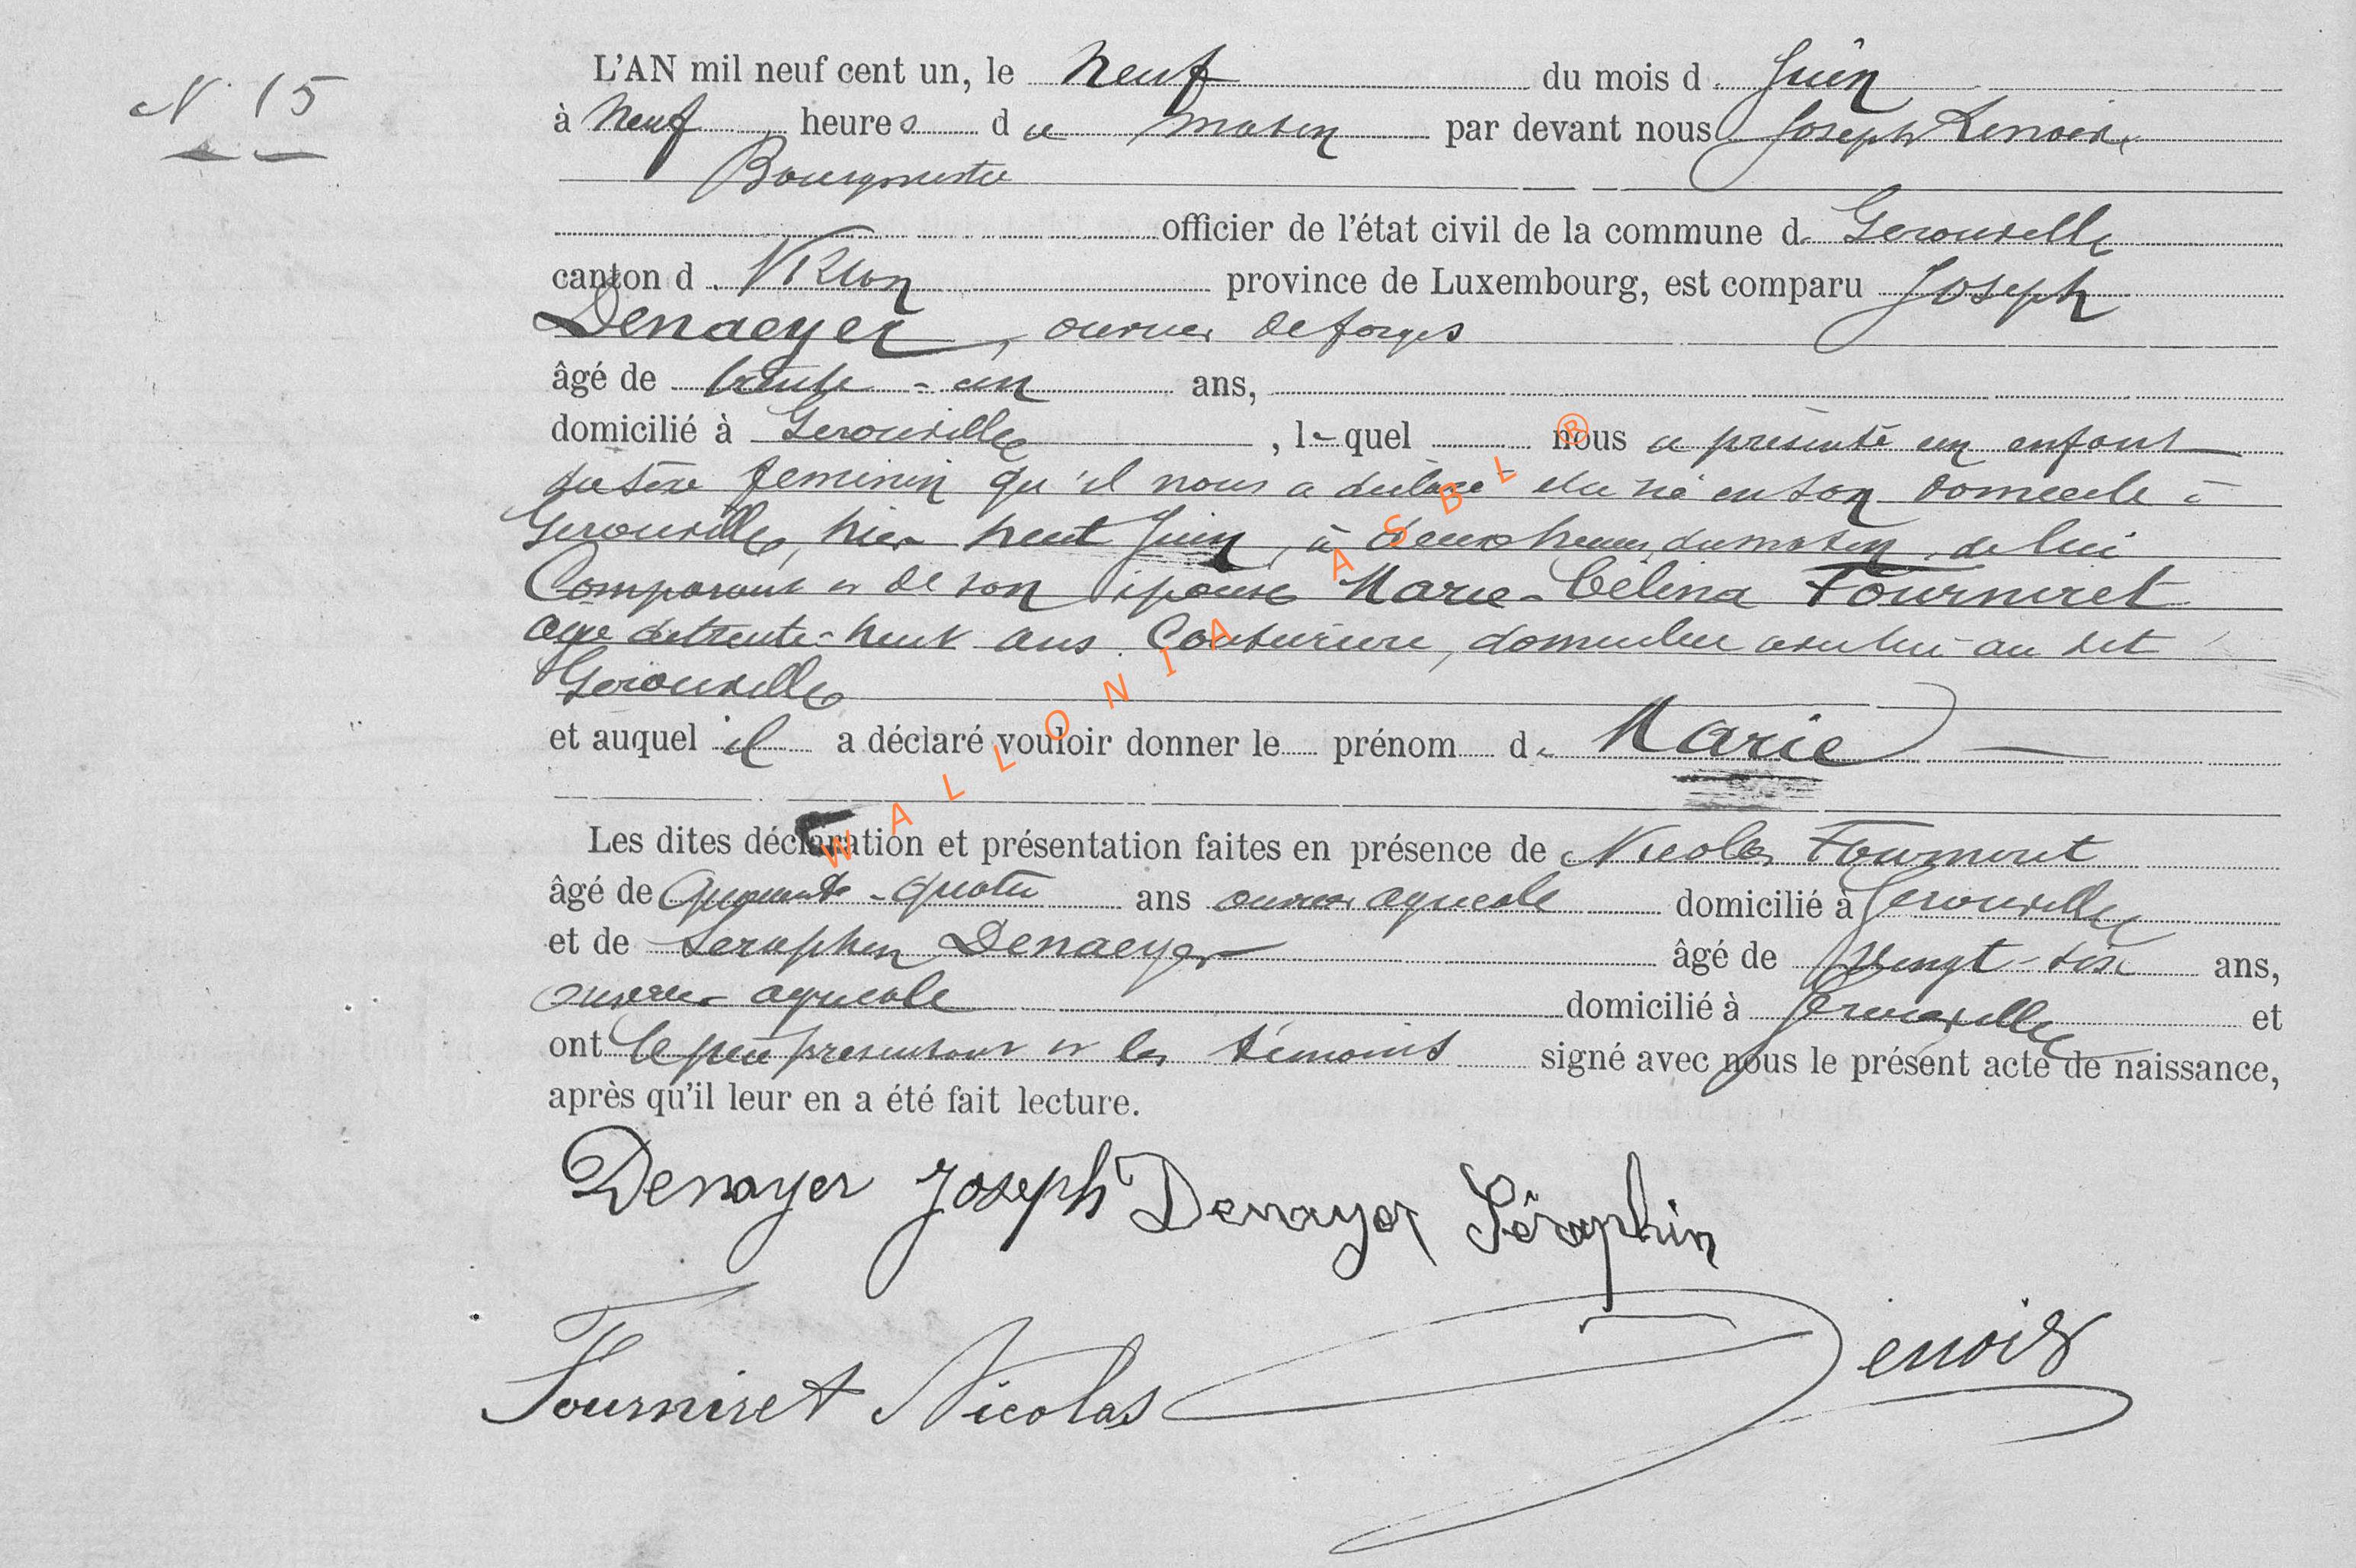 N. 15
L'AN mil neuf cent un, le neuf du mois de Juin
à neuf heures du matin par devant nous Joseph Lenoir,
Bourgmestre
officier de l'état civil de la commune de Gerouville
canton de Virton province de Luxembourg, est comparu Joseph
Denaeyer, ouvrier de forges
âgé de trente-un ans,
domicilié à Gerouville, lequel nous a présenté un enfant
du sexe feminin qu'il nous a déclaré être né en son domicile à
Gerouville, hier huit Juin, à deux heures du matin, de lui
Comparant et de son épouse Marie-Célina Fourniret
agée de trente-huit ans Couturière, domiciliée avec lui au dit
Gerouville
et auquel il a déclaré vouloir donner le prénom de Marie
Les dites déclaration et présentation faites en présence de Nicolas Fourniret
âgé de quarante-quatre ans ouvrier agricole domicilié à Gerouville
et de Seraphin Denaeyer âgé de vingt-six ans,
ouvrier agricole domicilié à Gerouville et
ont le père présentant et les témoins signé avec nous le présent acte de naissance,
après qu'il leur en a été fait lecture.
Denayer Joseph Denayer Séraphin
Fourniret Nicolas Lenoir
WALLONIA ASBL ®